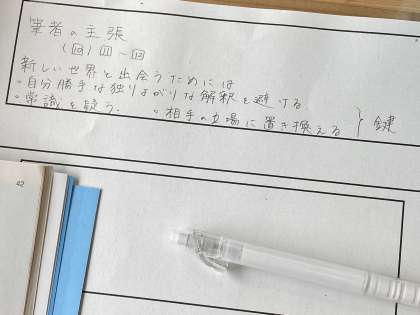 筆者の主張
(⑩) ⑪ ~ ⑫
新しい世界と出会うためには
○自分勝手な独りよがりな解釈を避ける
○常識を疑う. ○相手の立場に置き換える } 鍵
42